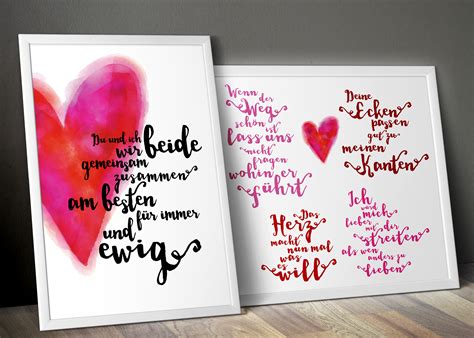 Du und ich
wir beide
gemeinsam
zusammen
am besten
für immer
und
ewig
Wenn der
Weg
schön ist
lass uns
nicht
fragen
wohin er
führt
Deine
Ecken
passen
gut zu
meinen
Kanten
Das
Herz
macht nun mal
was
es
will
Ich
würd mich
lieber mit dir
streiten
als wen
anders zu
lieben